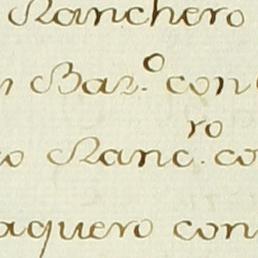 Ranchero
n Bar.º con
o Ranc.ro co
aquero con